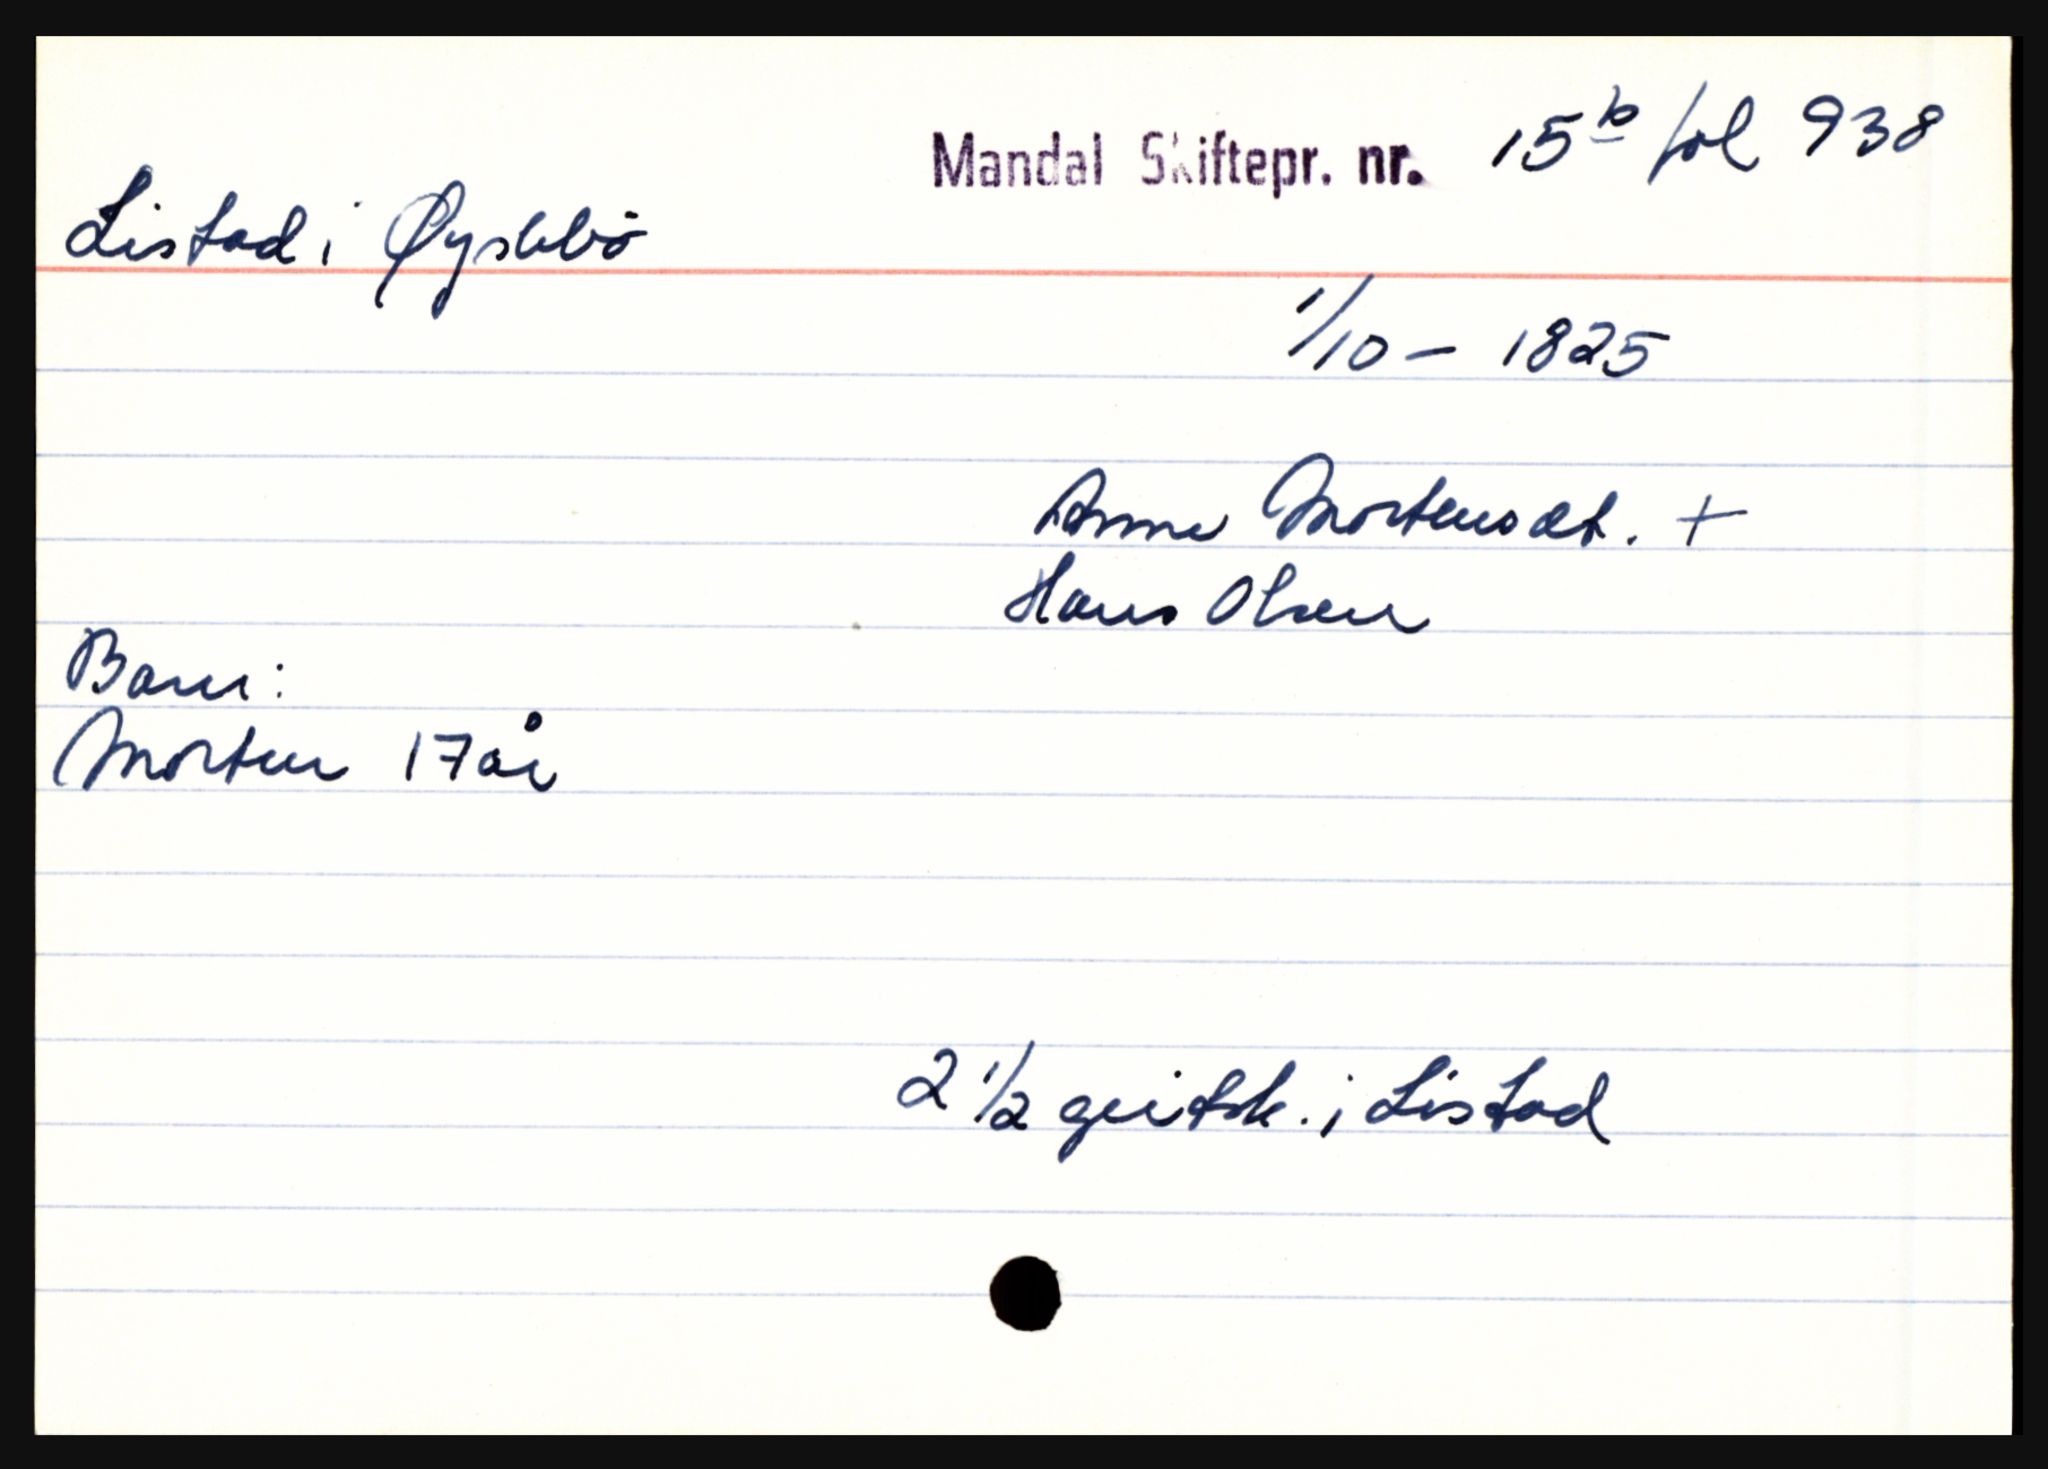 Mandal Skiftepr. nr. 15b fol 938
Listad i Øyslebö
1/10 - 1825
Anne Mortensdt. +
Hans Olsen
Barn:
Morten 17 år
2 1/2 geitsk. i Listad